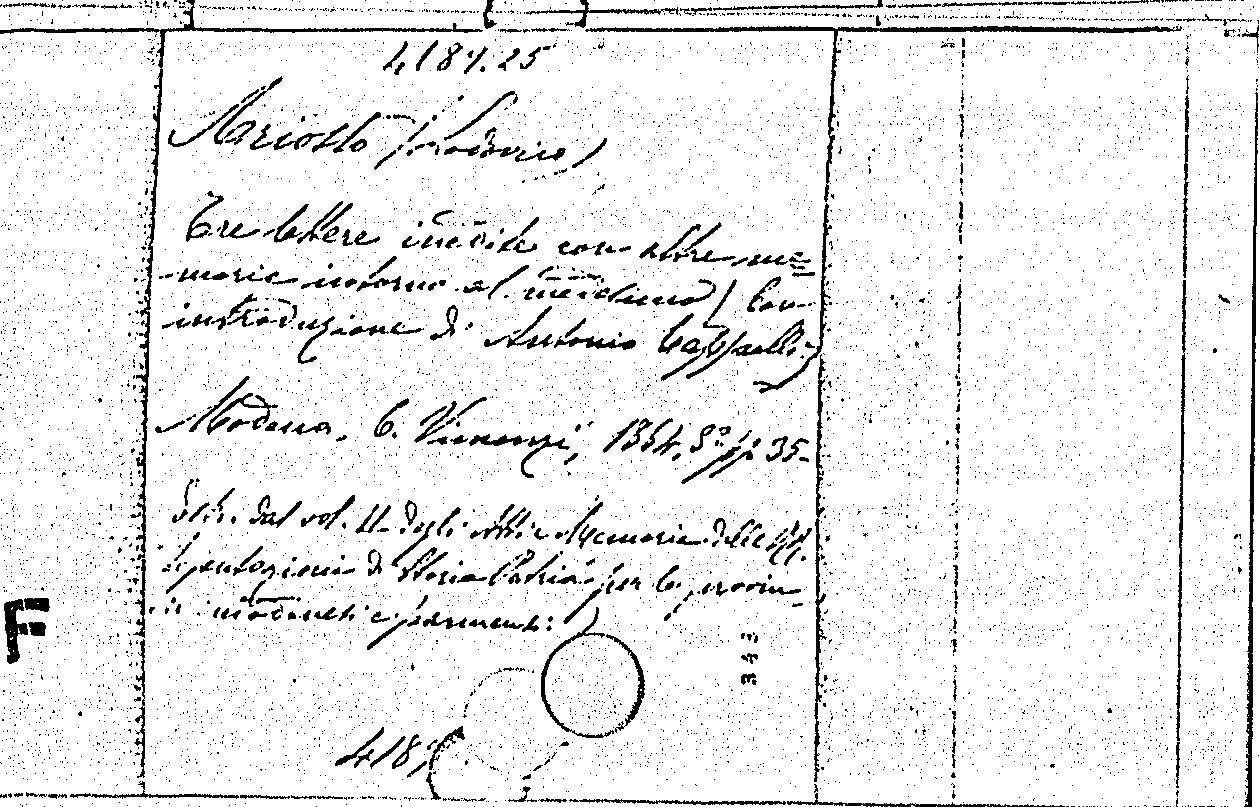 4187.25
Ariosto (Lodovico)
Tre lettere inedite con altre me=
-morie intorno al medesimo) Con
introduzione di Antonio Cappelli)
Modena, C. Vincenzi, 1864, 8º pp 35-
Estr. dal vol. II degli Atti e Memorie delle RR.
Deputazioni di Storia Patria per le provin-
cie modenesi e parmensi)
343
F
4187